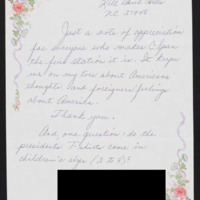 Kill Devil Hills
NC 27948
Just a note of appreciation
for everyone who makes C-Span
the fine station it is. It keeps
me on my toes about Americans
thoughts and foreigners' feelings
about America.
Thank you.
And, one question: do the
presidents T-shirts come in
children's size (2 to 8)?